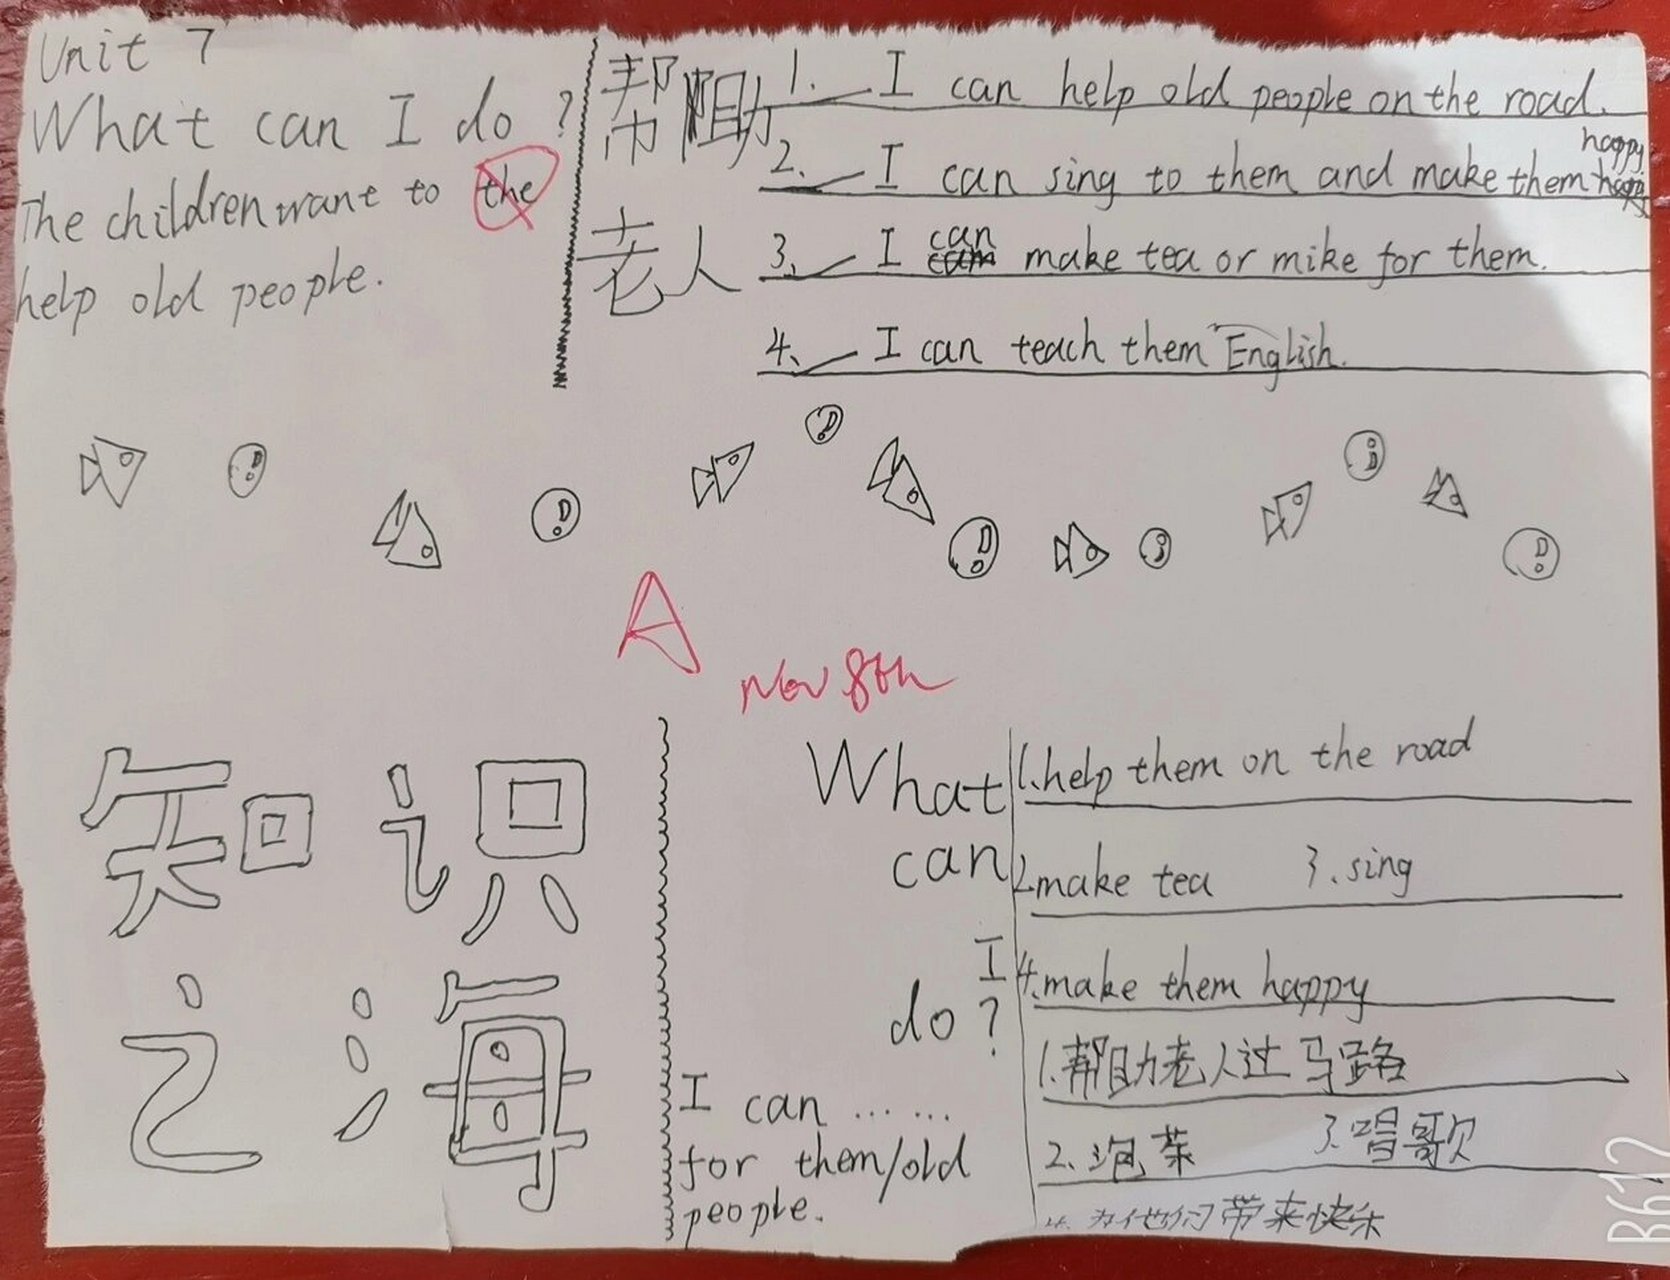 Unit 7
What can I do?
The children want to the
help old people.
帮助
老人
1. I can help old people on the road.
2. I can sing to them and make them happy
3. I can make tea or mike for them.
4. I can teach them English.
A
Nov 8th
知识
之海
What
can
I
do?
I can ... ...
for them/old
people.
1. help them on the road
2. make tea 3. sing
4. make them happy
1. 帮助老人过马路
2. 泡茶 3. 唱歌
4. 为他们带来快乐
B612